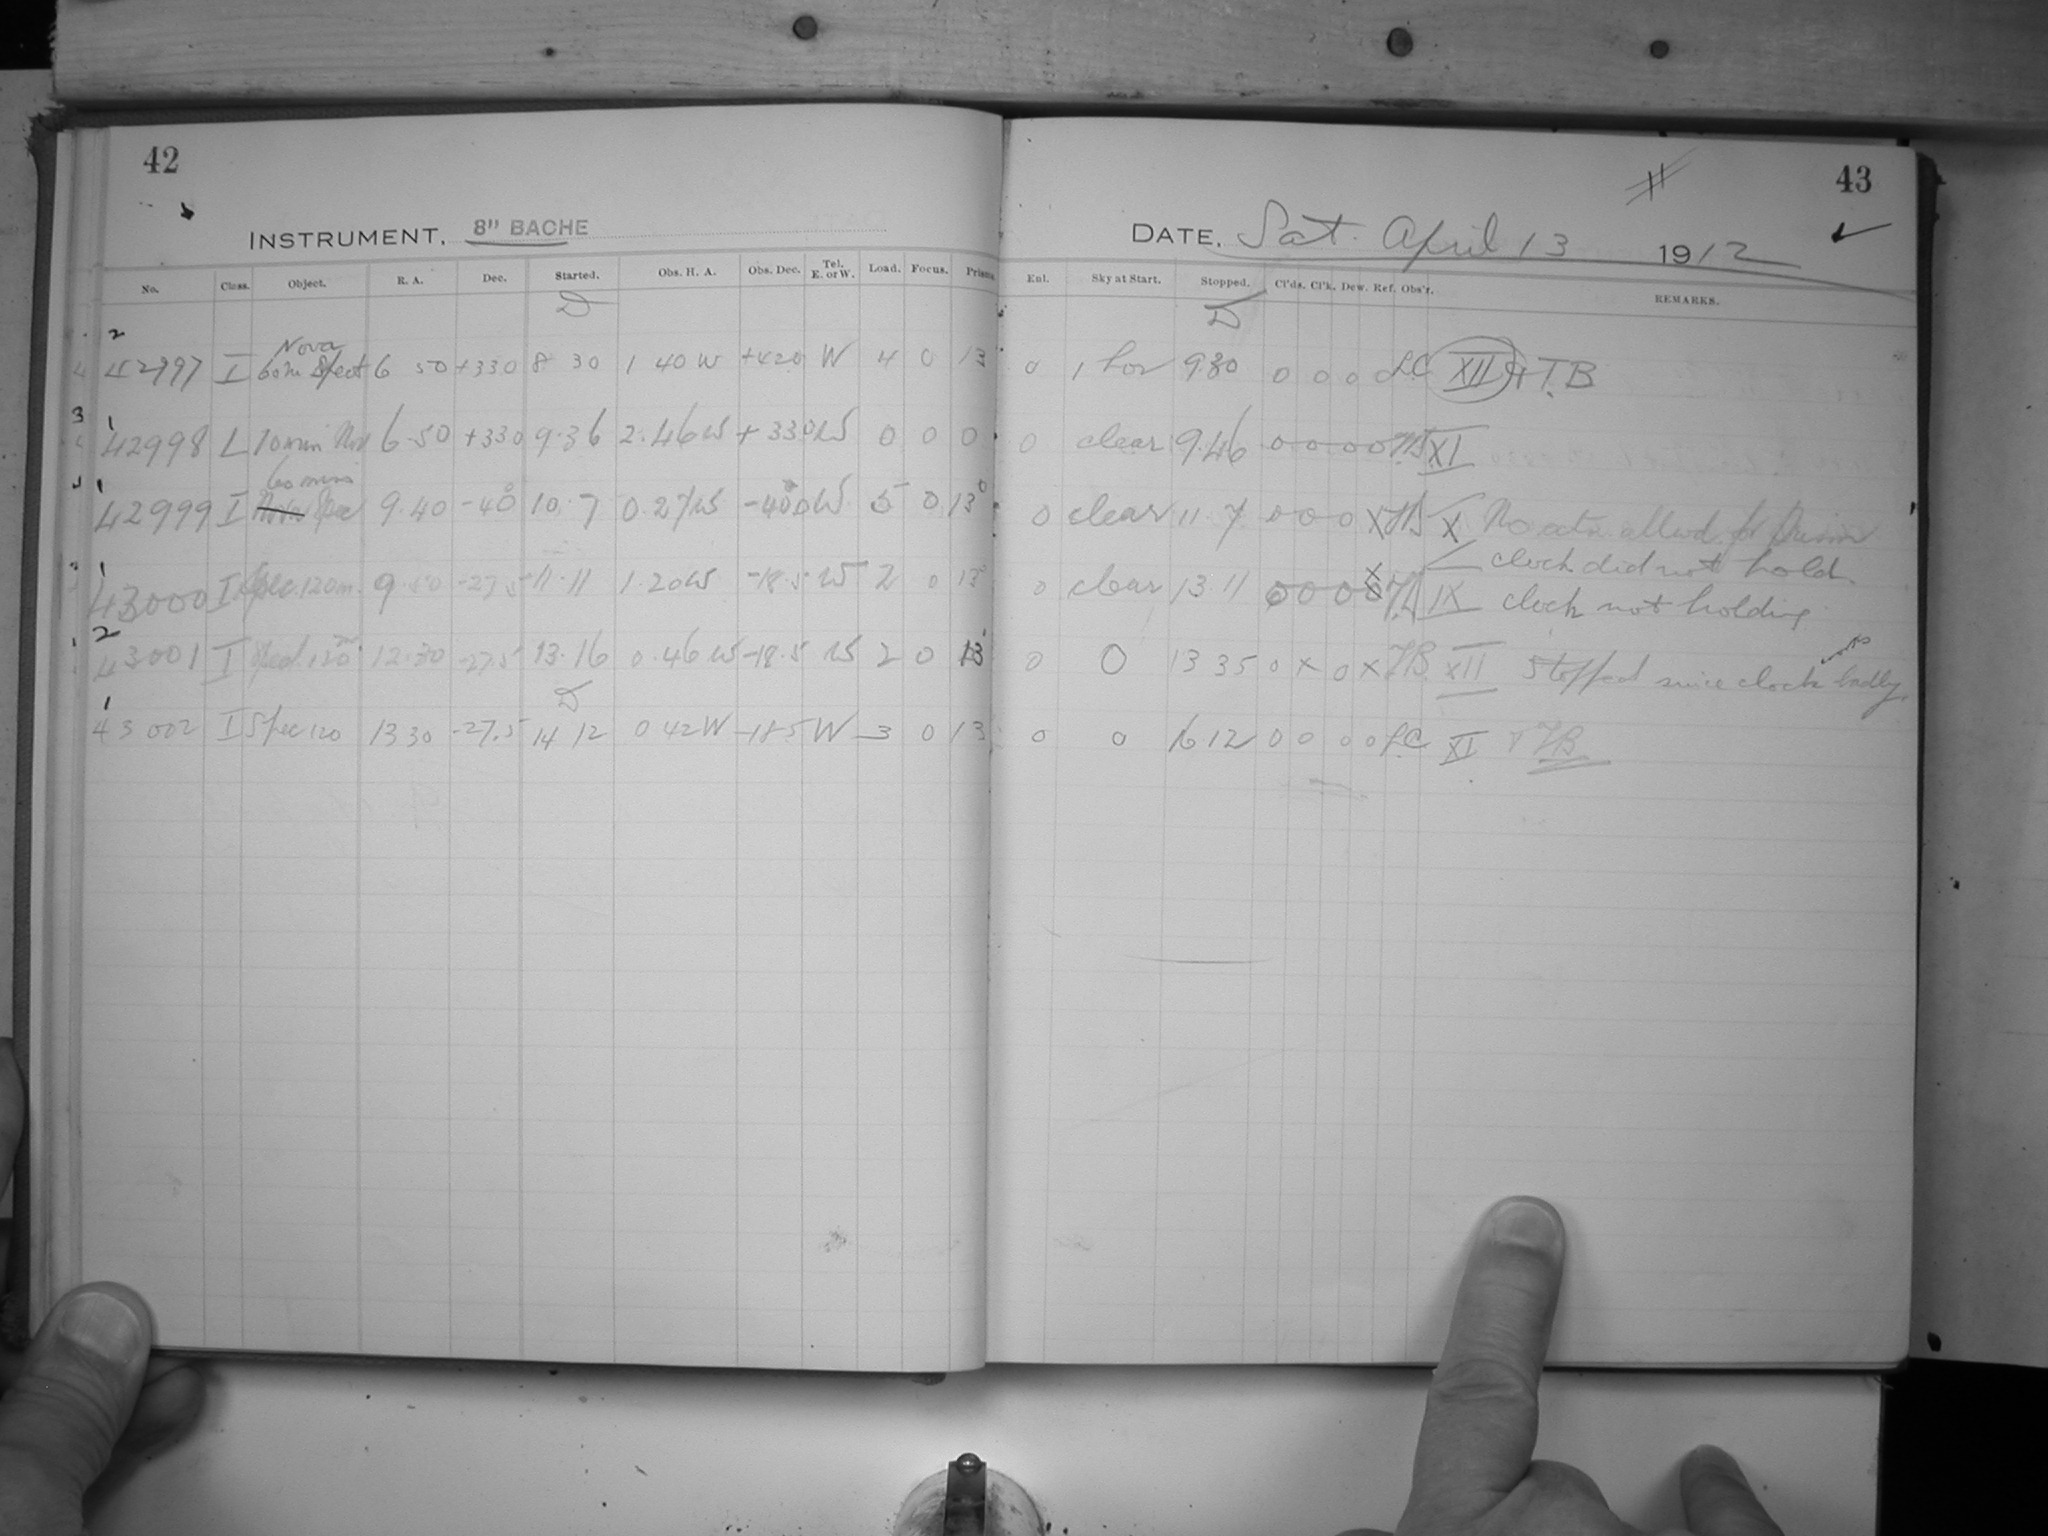 42
INSTRUMENT. 8" BACHE
No. Class. Object. R. A. Dec. Started. Obs. H. A. Obs. Dec. Tel. E. or W. Load. Focus. Prism
2
42997 I Nova 60m Spect 6 50 +330 8 30 1 40 W +420 W 4 0 13
3 1
42998 L 10min 6.50 +330 9.36 2.46W +330 W 0 0 0
1 60 min
42999 I Spec 9.40 -40° 10.7 0.27W -40° W 5 0 13°
1
43000 I Spec. 120m. 9.50 -27.5 11.11 1.20W -18.5 W 2 0 13°
2
43001 I Spect. 120m 12.30 -27.5 13.16 0.46W -18.5 W 2 0 13
1
43002 I Spec 120 13 30 -27.5 14 12 0 42W -18.5 W 3 0 13
43
DATE. Sat. April 13 1912
Ent. Sky at Start. Stopped. Cl'ds. Cl'k. Dew. Ref. Obs'r. REMARKS.
0 1 hor 9 30 0 0 0 0 LC XII + T.B
0 clear 9.46 0 0 0 0 XI
0 clear 11.7 0 0 0 X X No allwd. for Prism
clock did not hold
0 clear 13.11 0 0 0 X IX clock not holding
0 0 13 35 0 X 0 X XII Stopped since clock badly
0 0 16 12 0 0 0 0 LC XI